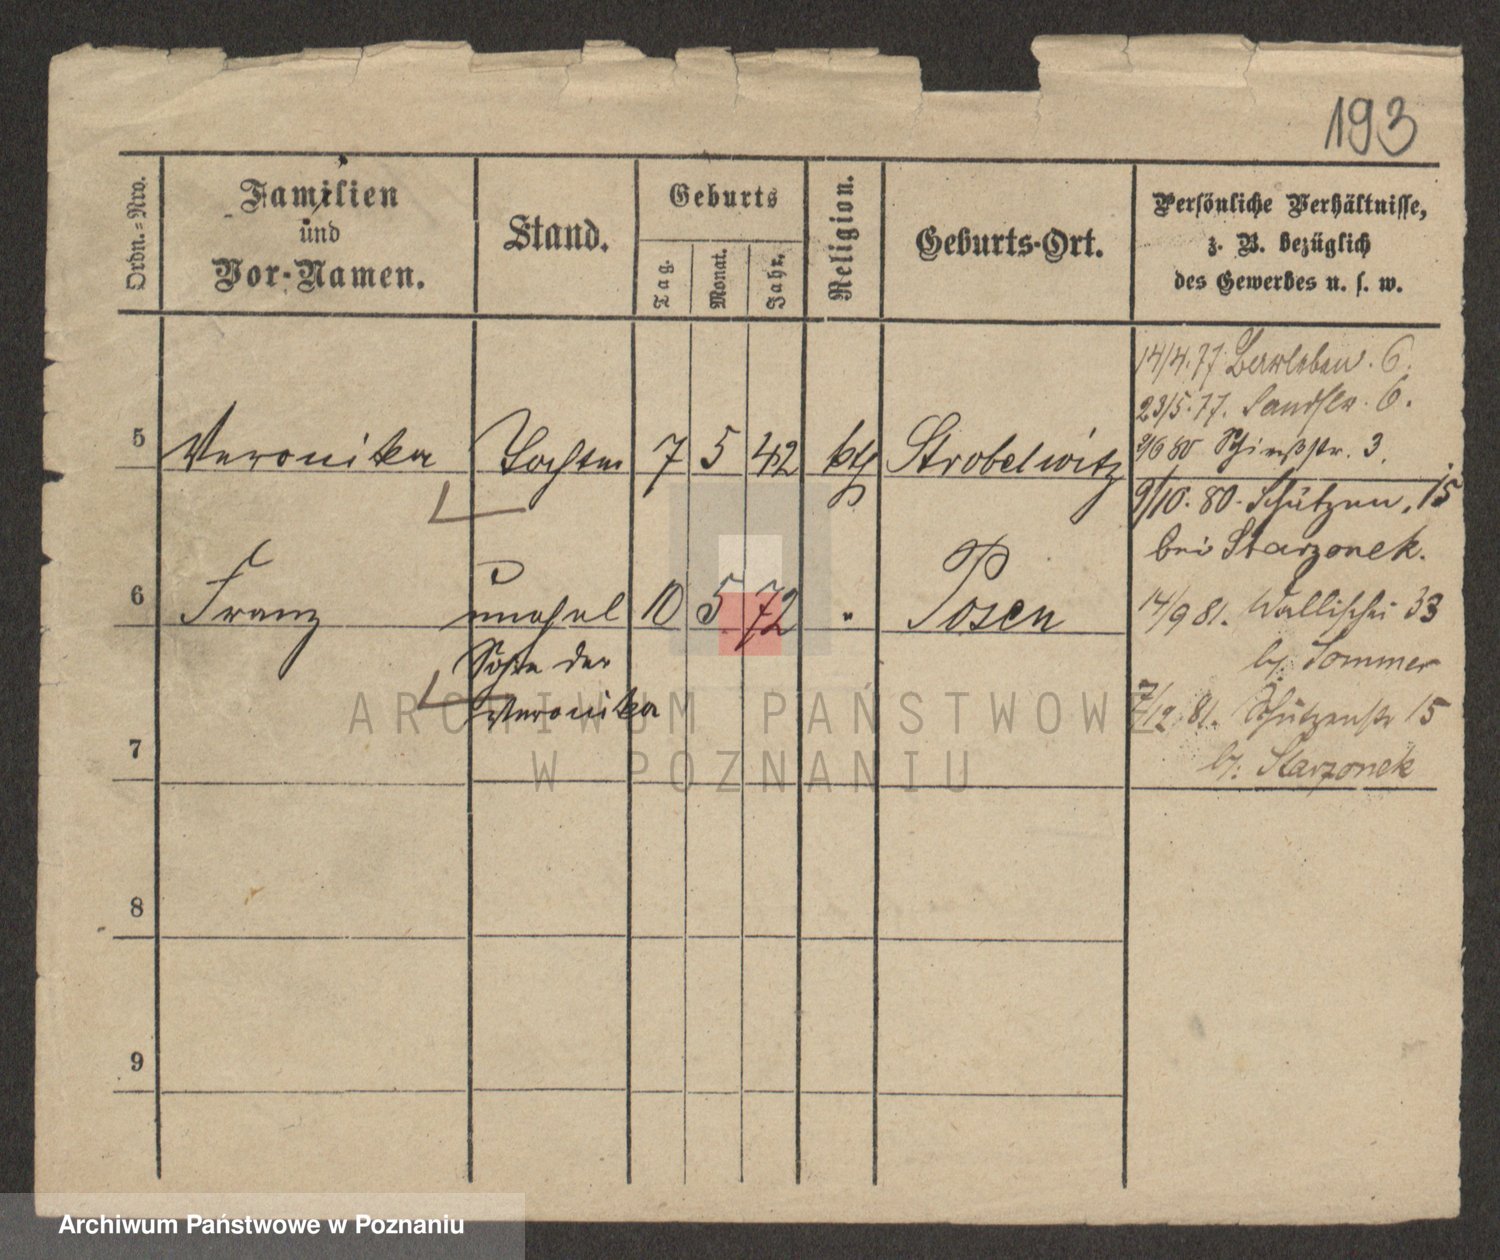 193
Ordn.-Nro.
Familien
und
Vor-Namen.
Stand.
Geburts
Tag.
Monat.
Jahr.
Religion.
Geburts-Ort.
Persönliche Verhältnisse,
z. B. bezüglich
des Gewerbes u. s. w.
14/4.77 6.
23/5.77. Sandstr. 6.
5 Veronika Tochter 7 5 42 kth Strobelwitz
9/6 80 Schießstr. 3.
9/10.80. Schützen. 15
bei Starzonek.
6 Franz unehel 10 5 72 " Posen
Sohn der
Veronika
14/9 81. Wallischei 33
b/. Sommer
7/12.81. Schützenstr 15
b/. Starzonek
7
8
9
ARCHIWUM PAŃSTWOWE
W POZNANIU
Archiwum Państwowe w Poznaniu